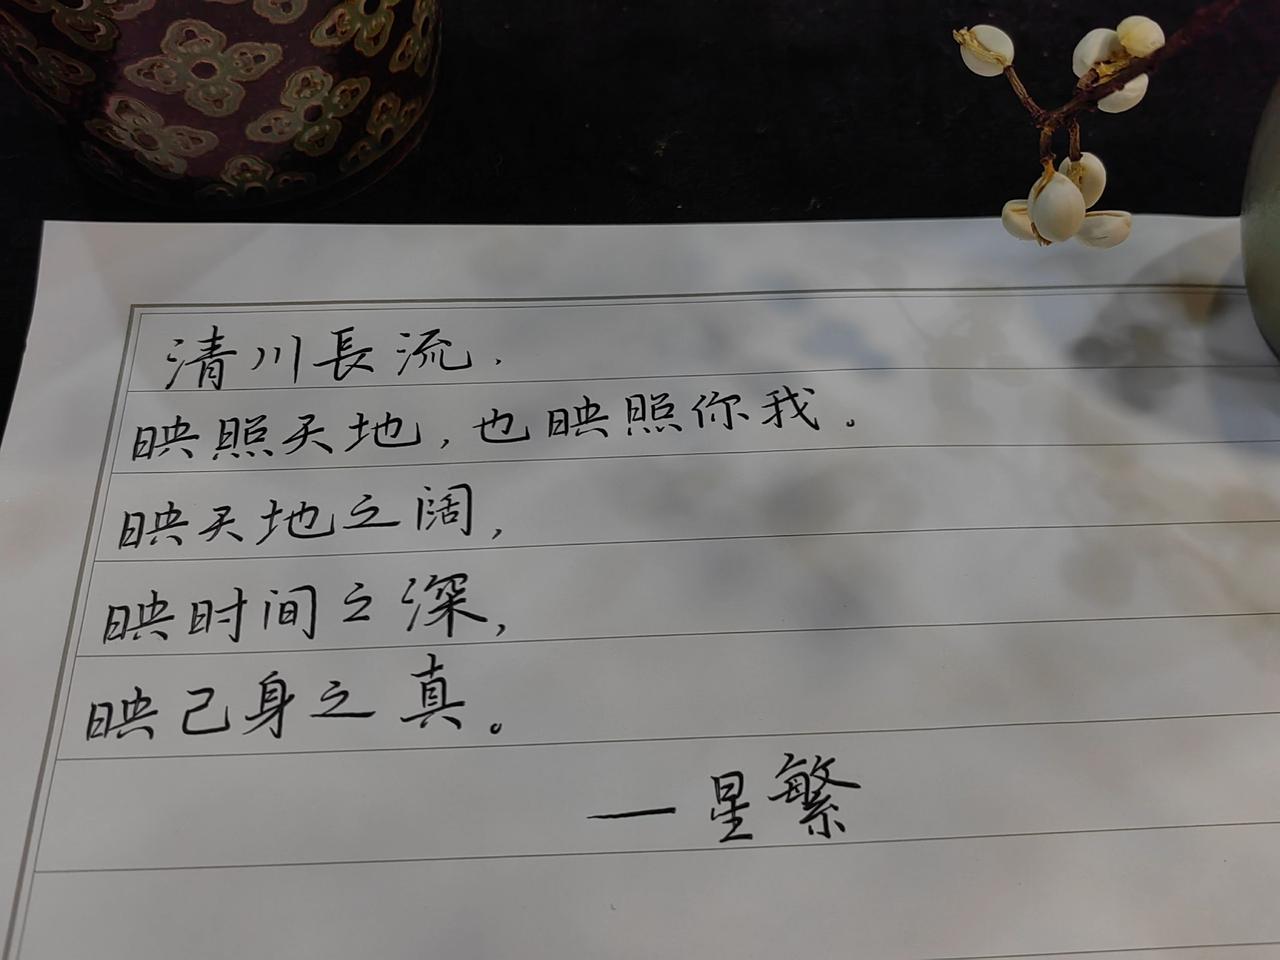 清川長流，
映照天地，也映照你我。
映天地之阔，
映时间之深，
映己身之真。
—星繁